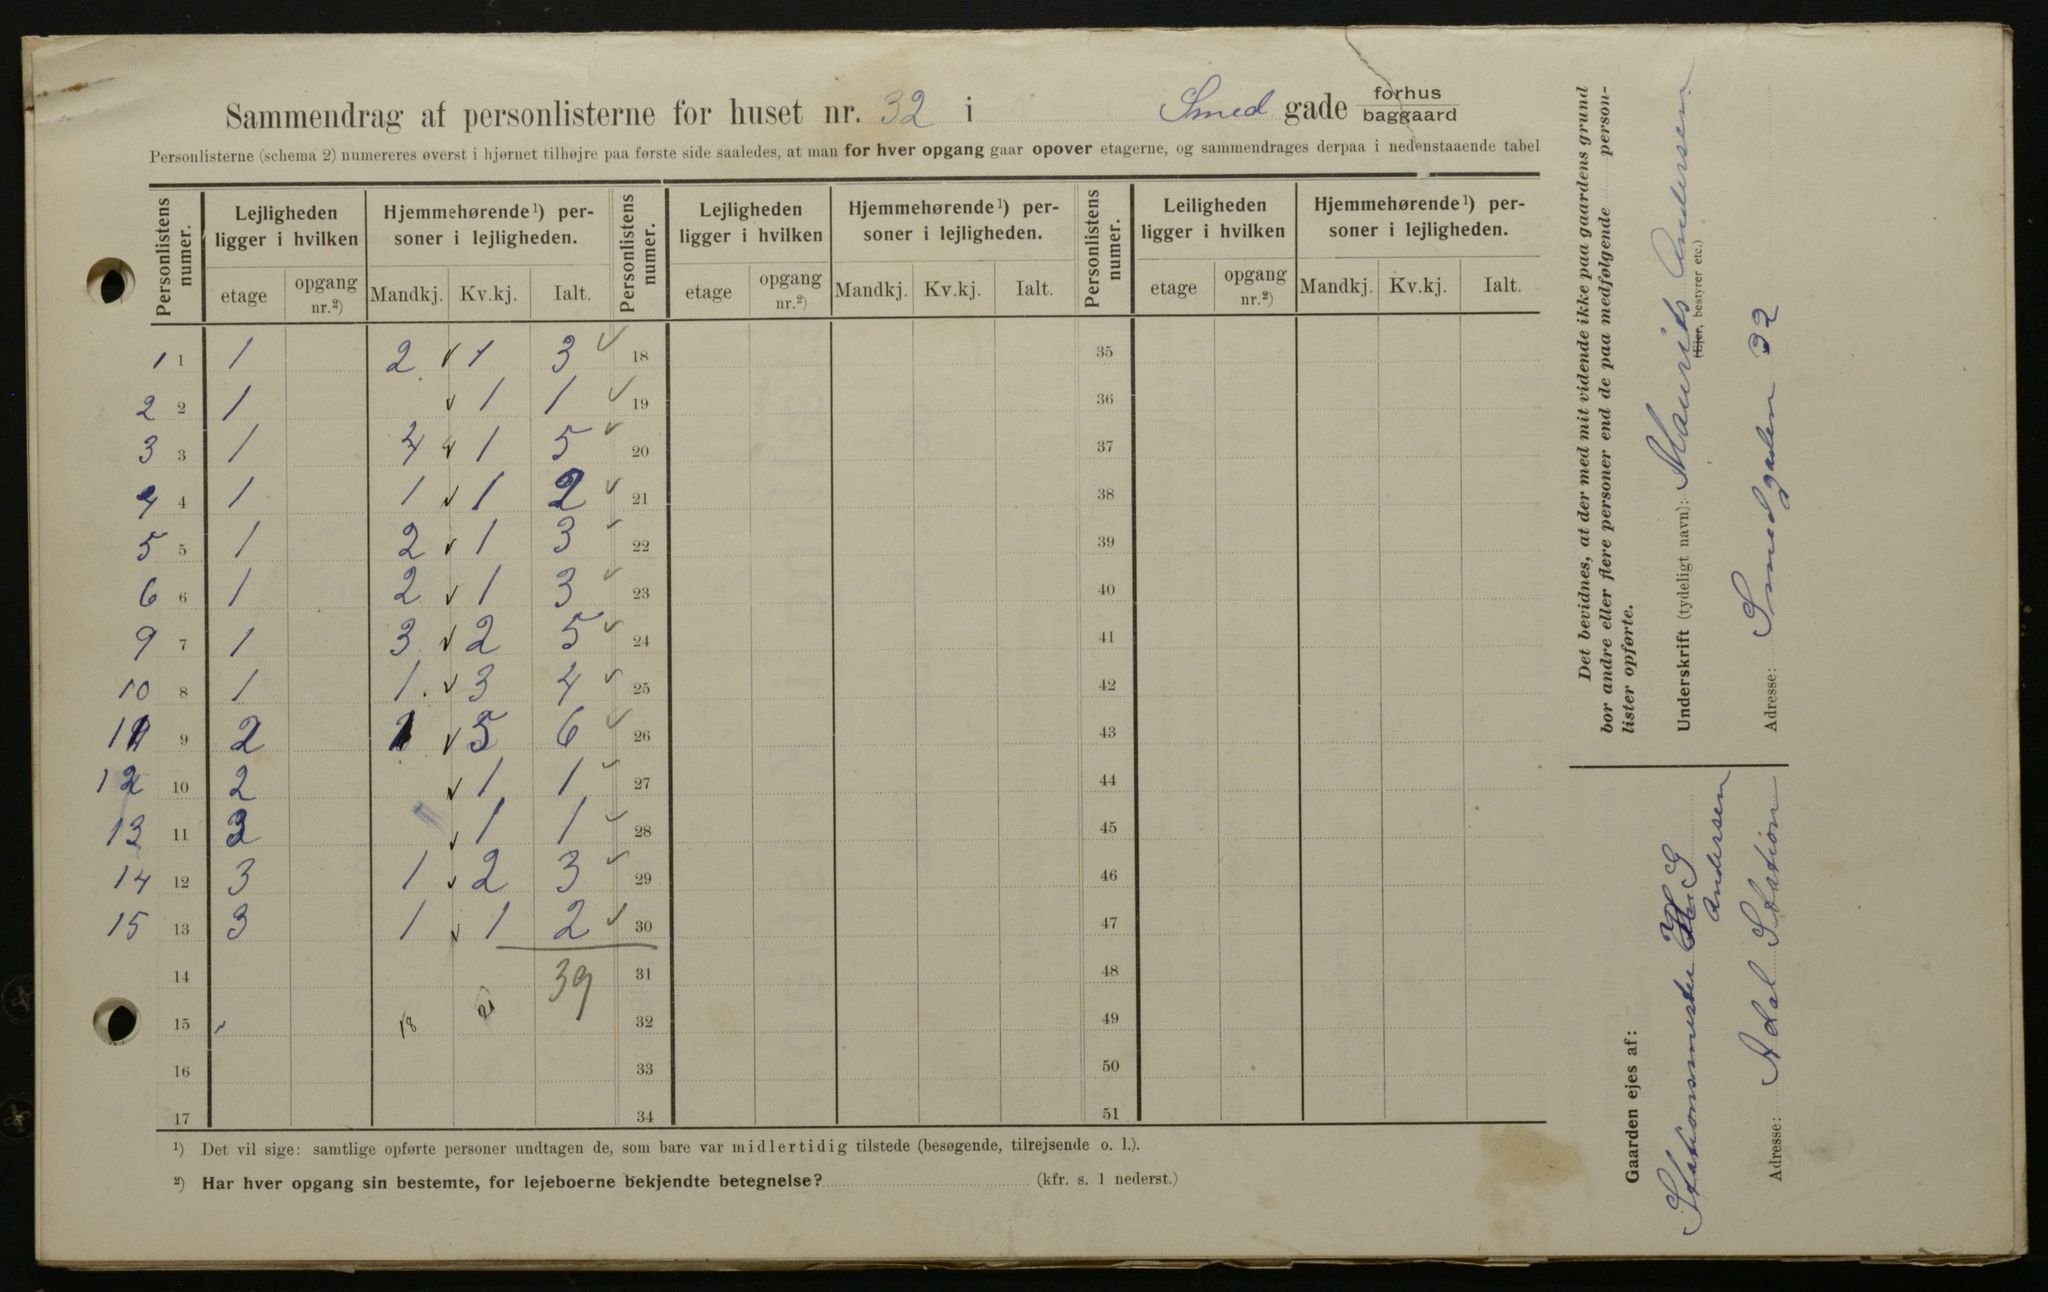 Sammendrag af personlisterne for huset nr. 32 i Smed gade forhus
baggaard
Personlisterne (schema 2) numereres øverst i hjørnet tilhøjre paa første side saaledes, at man for hver opgang gaar opover etagerne, og sammendrages derpaa i nedenstaaende tabel
Personlistens numer. Lejligheden ligger i hvilken Hjemmehørende¹) personer i lejligheden. Personlistens numer. Lejligheden ligger i hvilken Hjemmehørende¹) personer i lejligheden. Personlistens numer. Leiligheden ligger i hvilken Hjemmehørende¹) personer i lejligheden.
etage opgang nr.²) Mandkj. Kv.kj. Ialt. etage opgang nr.²) Mandkj. Kv.kj. Ialt. etage opgang nr.²) Mandkj. Kv.kj. Ialt.
1 1 1 2 ✓ 1 3 ✓ 18 35
2 2 1 ✓ 1 1 ✓ 19 36
3 3 1 4 ✓ 1 5 ✓ 20 37
4 4 1 1 ✓ 1 2 ✓ 21 38
5 5 1 2 ✓ 1 3 ✓ 22 39
6 6 1 2 ✓ 1 3 ✓ 23 40
9 7 1 3 ✓ 2 5 ✓ 24 41
10 8 1 1 ✓ 3 4 ✓ 25 42
11 9 2 1 ✓ 5 6 ✓ 26 43
12 10 2 ✓ 1 1 ✓ 27 44
13 11 3 ✓ 1 1 ✓ 28 45
14 12 3 1 ✓ 2 3 ✓ 29 46
15 13 3 1 ✓ 1 2 ✓ 30 47
14 39 31 48
15 18 21 32 49
16 33 50
17 34 51
¹) Det vil sige: samtlige opførte personer undtagen de, som bare var midlertidig tilstede (besøgende, tilrejsende o. l.).
²) Har hver opgang sin bestemte, for lejeboerne bekjendte betegnelse? (kfr. s. 1 nederst.)
Det bevidnes, at der med mit vidende ikke paa gaardens grund
bor andre eller flere personer end de paa medfølgende person-
lister opførte.
Underskrift (tydeligt navn): Maurits Andersen
(Ejer, bestyrer etc.)
Adresse: Smedgaden 32
Gaarden ejes af:
Stationsmester
Andersen
Adresse: Adal Station